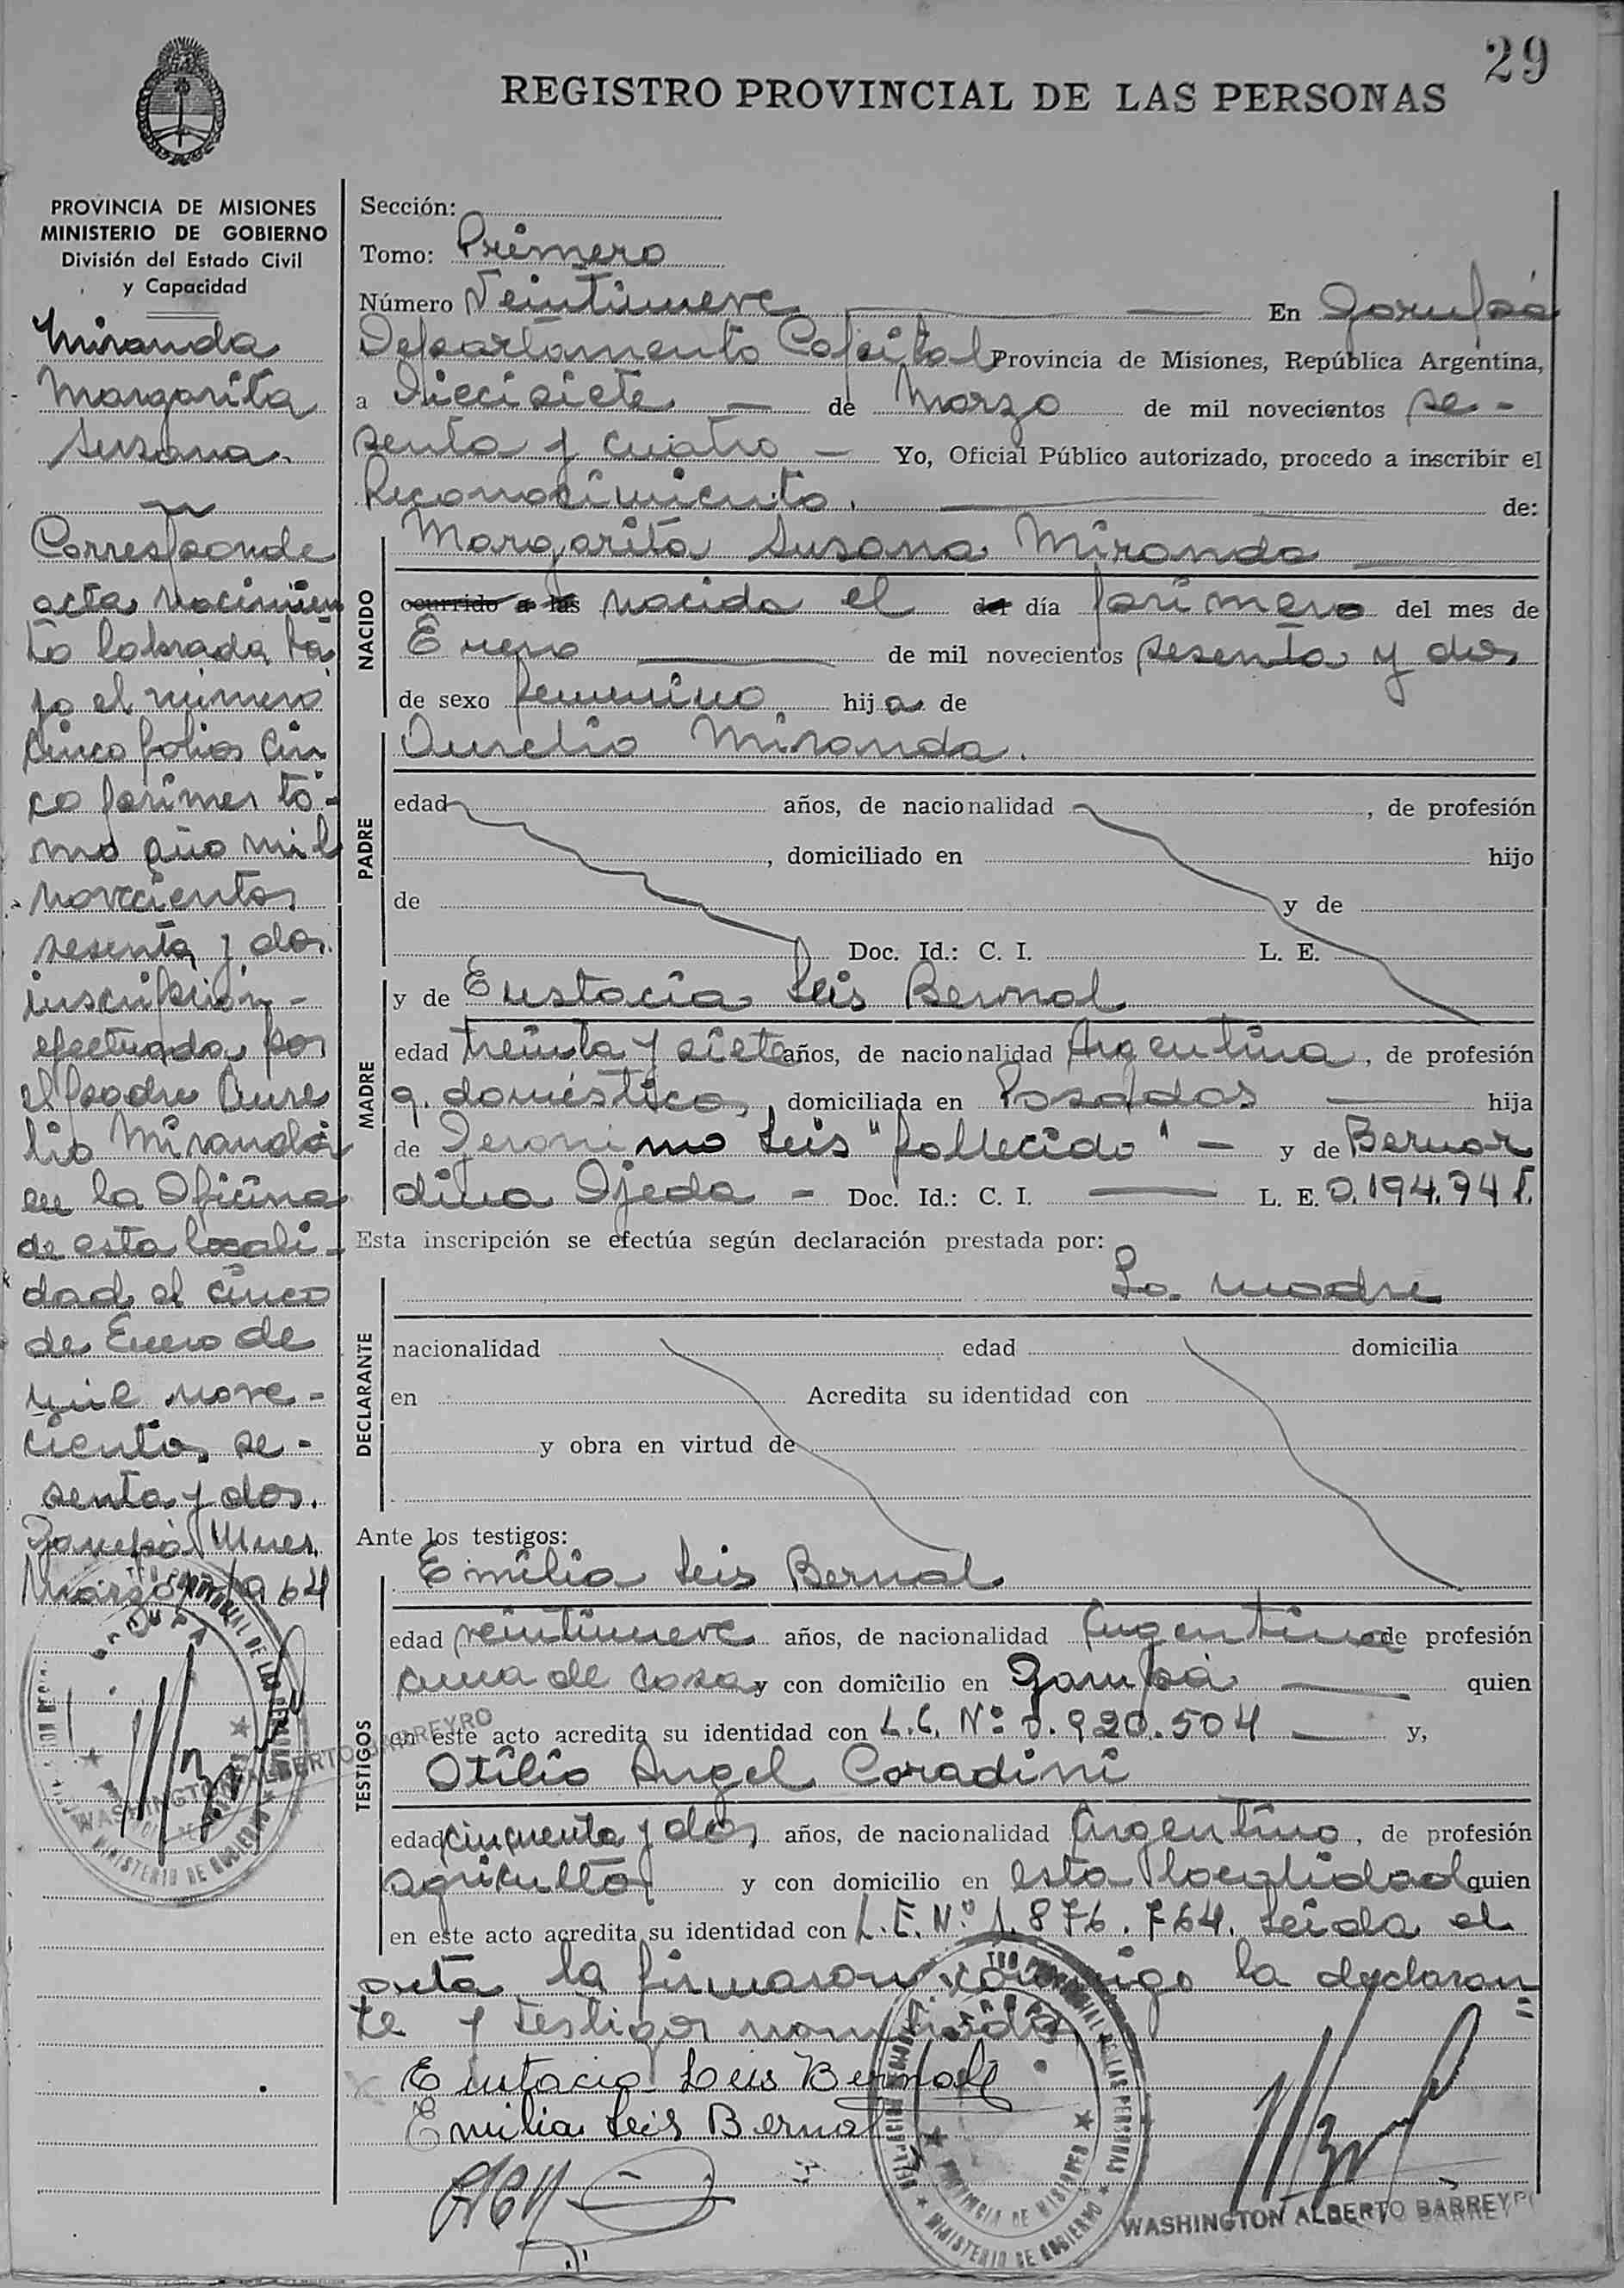 29
REGISTRO PROVINCIAL DE LAS PERSONAS
PROVINCIA DE MISIONES
MINISTERIO DE GOBIERNO
División del Estado Civil
y Capacidad
Miranda
Margarita
Susana.
Corresponde
acta nacimien
to labrada ba
jo el número
cinco folios cin
co primer to-
mo año mil
novecientos
sesenta y dos.
inscripción-
efectuada por
el padre Aure
lio Miranda
en la Oficina
de esta locali-
dad el cinco
de Enero de
mil nove-
cientos se-
senta y dos.
Garupá Mnes.
Marzo 17/964
Sección:
Tomo: Primero
Número Veintinueve En Garupá
Departamento Capital Provincia de Misiones, República Argentina,
a Diecisiete - de Marzo de mil novecientos se-
senta y cuatro - Yo, Oficial Público autorizado, procedo a inscribir el
Reconocimiento. de:
NACIDO
Margarita Susana Miranda
ocurrido a las nacida el del día primero del mes de
Enero de mil novecientos sesenta y dos
de sexo femenino hija de
PADRE
Aurelio Miranda.
edad años, de nacionalidad , de profesión
, domiciliado en hijo
de y de
Doc. Id.: C. I. L. E.
MADRE
y de Eustacia Leis Bernal
edad treinta y siete años, de nacionalidad Argentina, de profesión
q. domésticos, domiciliada en Posadas hija
de Geronimo Leis "fallecido" - y de Bernar
dina Ojeda - Doc. Id.: C. I. L. E. 0.194.941.
Esta inscripción se efectúa según declaración prestada por:
DECLARANTE
La madre
nacionalidad edad domicilia
en Acredita su identidad con
y obra en virtud de
Ante los testigos:
TESTIGOS
Emilia Leis Bernal
edad veintinueve años, de nacionalidad Argentina de profesión
ama de casa y con domicilio en Garupá quien
en este acto acredita su identidad con L.C. Nº 0.920.504 y,
Otilio Angel Coradini
edad cincuenta y dos años, de nacionalidad Argentino, de profesión
agricultor y con domicilio en esta localidad quien
en este acto acredita su identidad con L.E. Nº 1.876.764. Leida el
acta la firmaron conmigo la declaran
te y testigos nombrados
Eustacia Leis Bernal
Emilia Leis Bernal
WASHINGTON ALBERTO BARREYRO
WASHINGTON ALBERTO BARREYRO
PROVINCIA DE MISIONES
MINISTERIO DE GOBIERNO